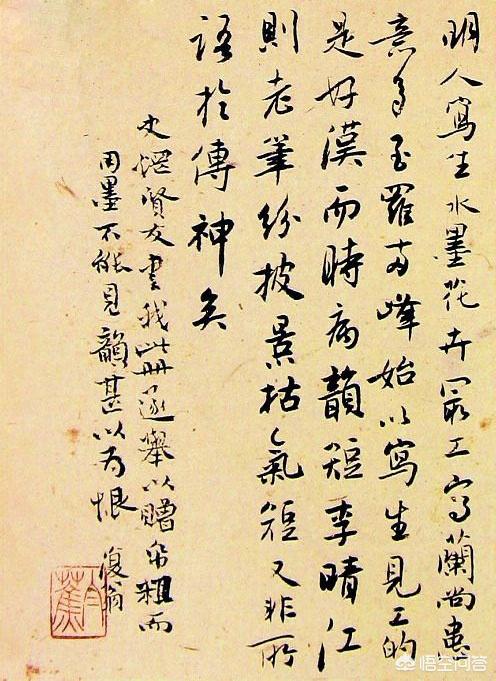 明人寫生水墨花卉冣工寫蘭尚
意多至羅兩峰始以寫生見工的
是好漢而時病韻短李晴江
則老筆紛披景枯氣短又非所
語於傳神矣
賢友我此冊遂舉以贈帋粗而
用墨不能見韻甚以为恨 復翁
悟空问答